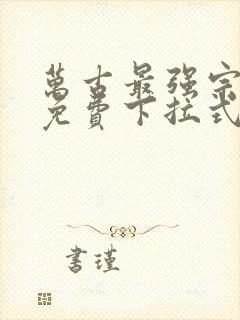 萬古最强宗
免費下拉式
書瑾